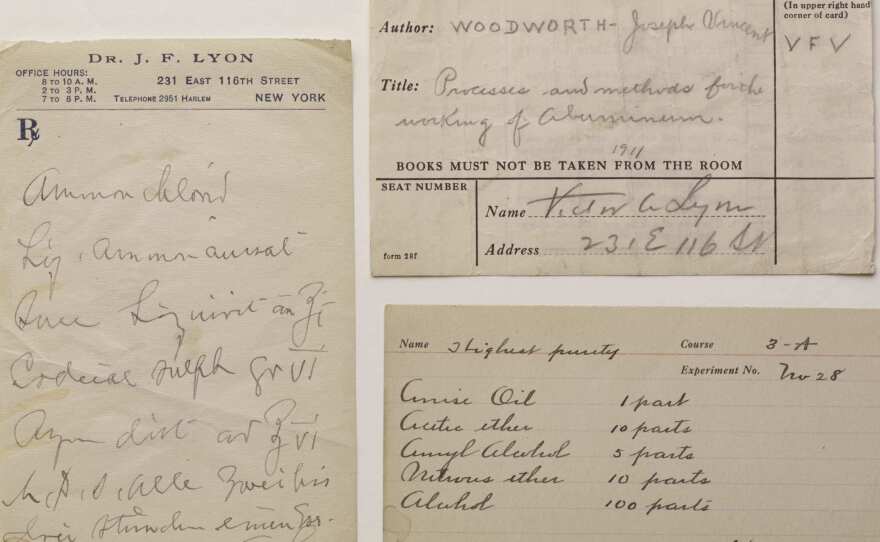 DR. J. F. LYON
OFFICE HOURS:
8 TO 10 A. M.
2 TO 3 P. M.
7 TO 8 P. M.
231 EAST 116TH STREET
TELEPHONE 2951 HARLEM
NEW YORK
℞
Ammon chlorid
Liq. Ammon
Succ Liquirit
Codeiae sulph gr VI
Aqu dist ad ʒ VI
M. D. S. Alle zwei bis
drei Stunden einen
(In upper right hand
corner of card)
Author: WOODWORTH- Joseph Vincent
VFV
Title: Processes and methods for the
working of Aluminum.
1911
BOOKS MUST NOT BE TAKEN FROM THE ROOM
SEAT NUMBER
Name Victor A Lyon
Address 231 E 116 St
form 28f
Name Highest purity
Course 3-A
Experiment No. No 28
Anise Oil 1 part
Acetic ether 10 parts
Amyl Alcohol 5 parts
Nitrous ether 10 parts
Alcohol 100 parts